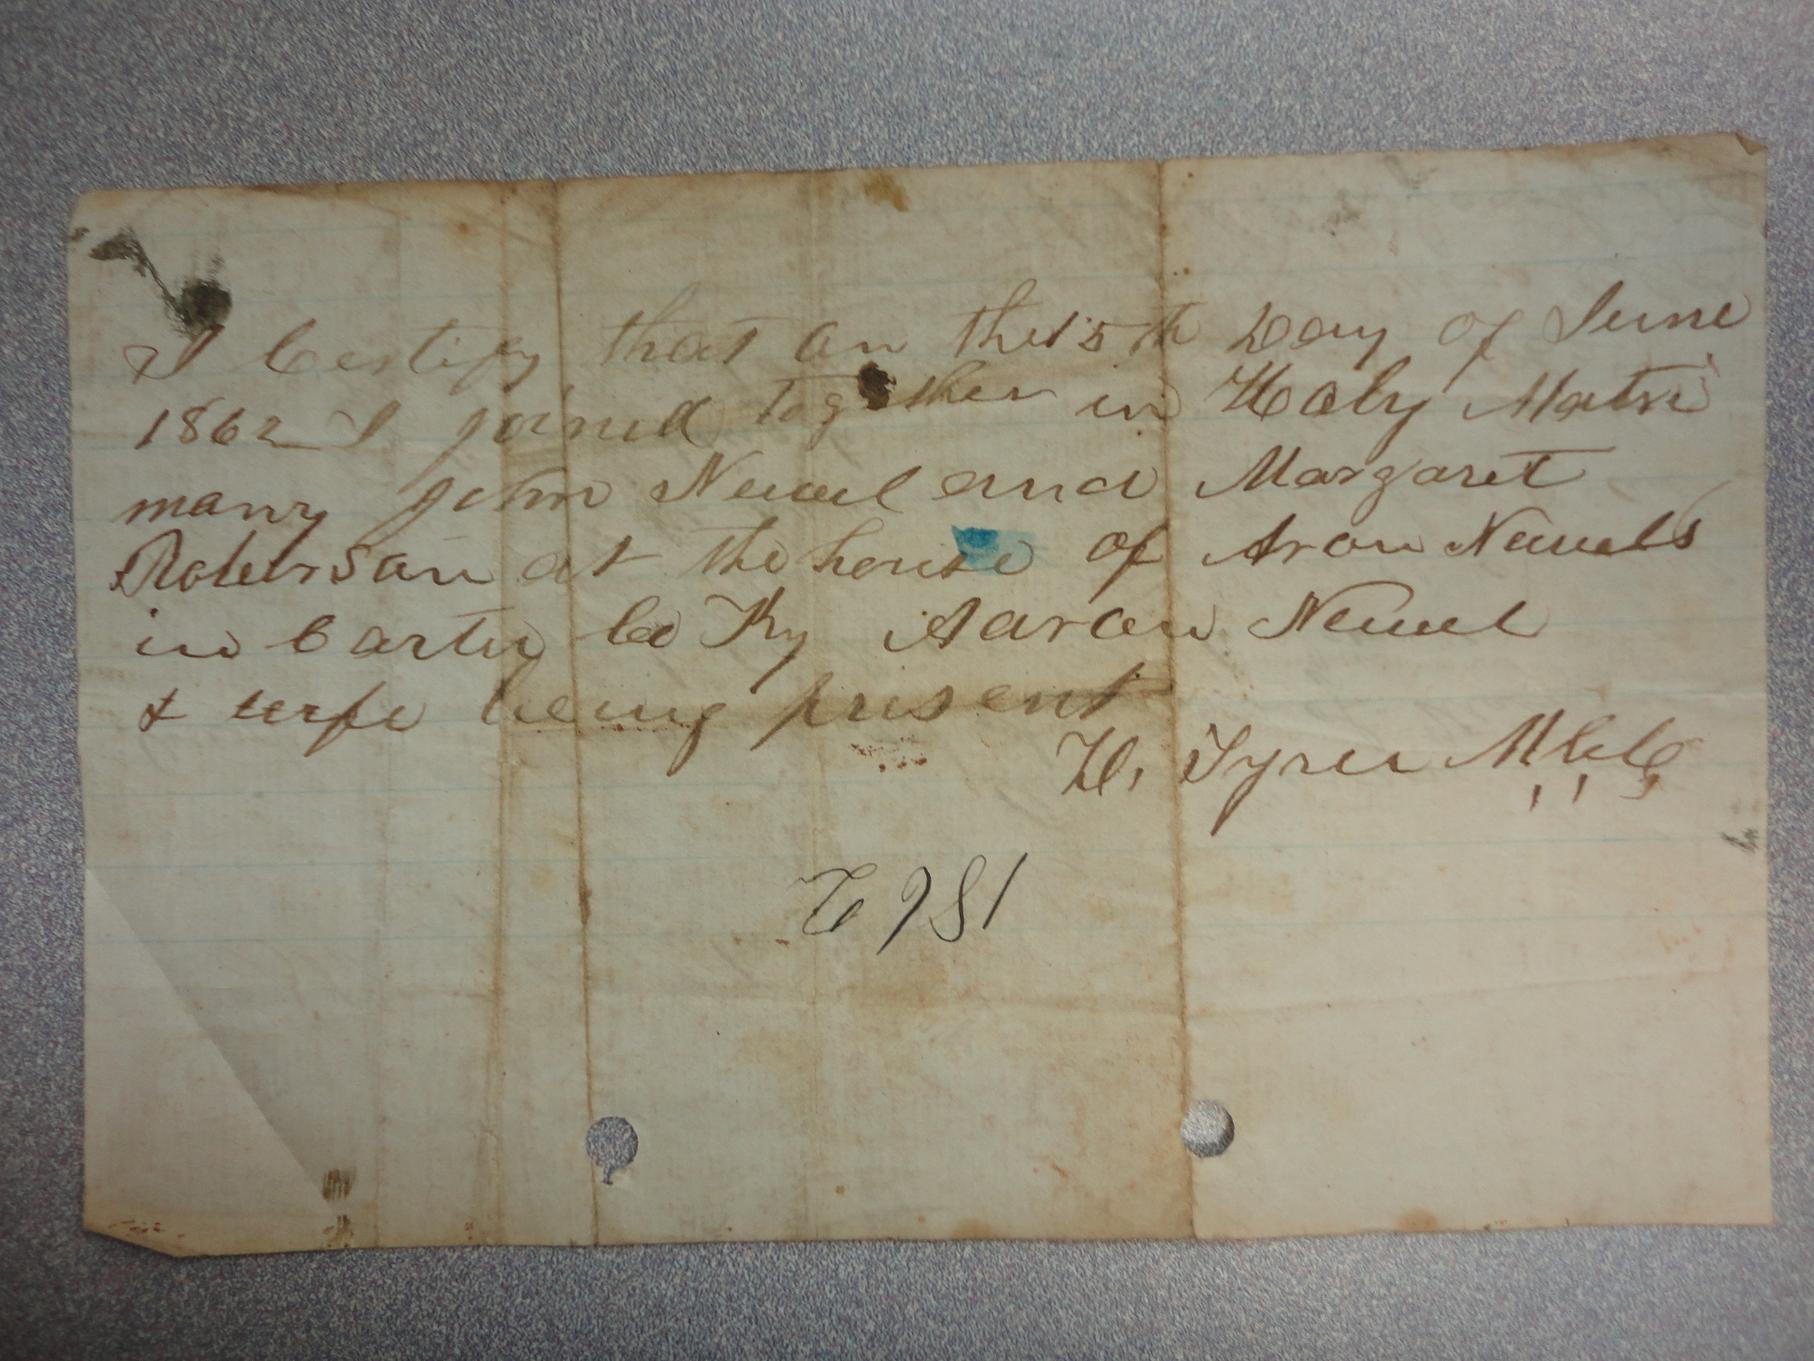 I Certify that on the 15th Day of June
1862 I joined together in Holy Matri
many John Newel and Margaret
Roberson at the house of Aron Newels
in Carter Co Ky Aaron Newel
& wife being present
H. Tyree M.C.C.
981